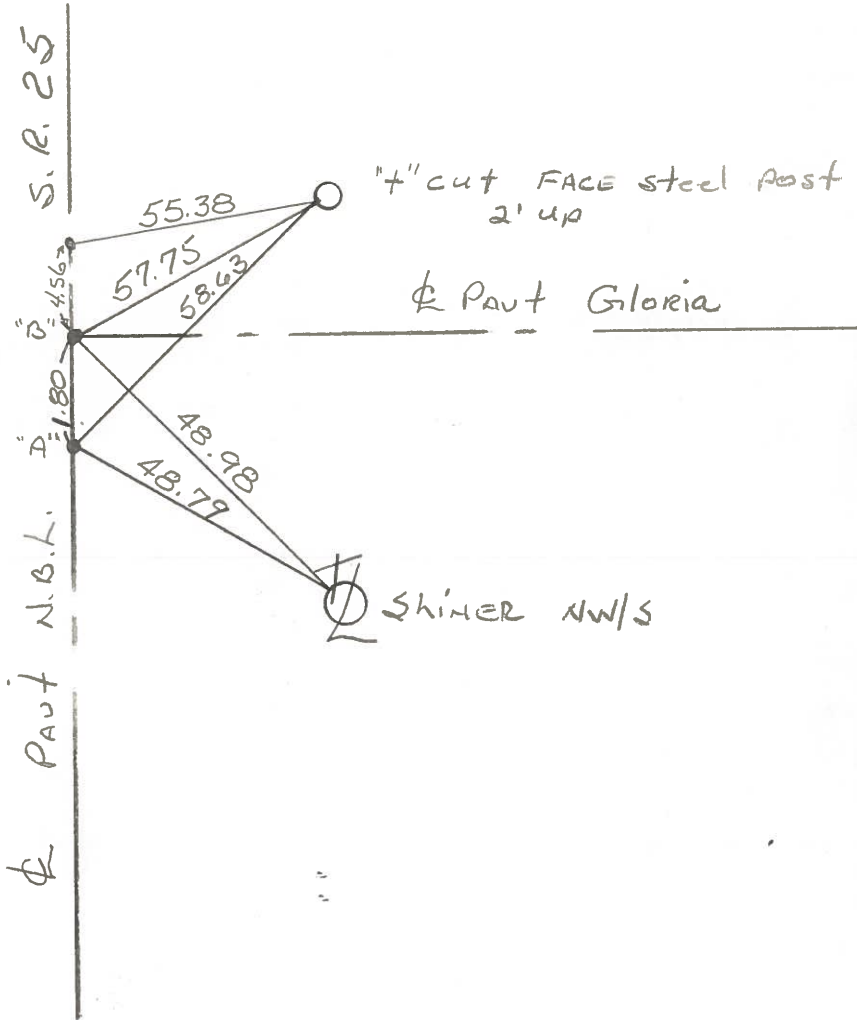 S. R. 25
"+" cut FACE steel Post
2' up
55.38
57.75
58.63
4.56
"B"
℄ PAVt Gloria
1.80
"D"
48.98
48.79
SHINER NW/S
℄ PAVt N.B.L.